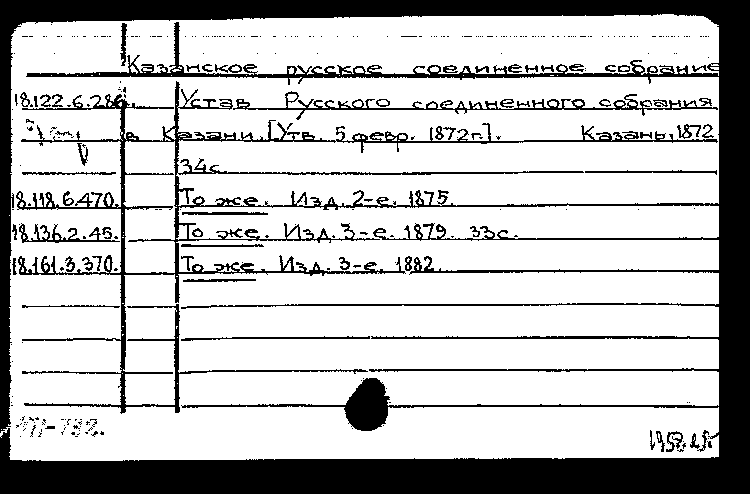 Казанское русское соединенное собрание
18.122.6.286. Устав Русского соединенного собрания
в Казани. [Утв. 5 февр. 1872г]. Казань, 1872
34с.
18.118.6.470. То же. Изд. 2-е. 1875.
18.136.2.45. То же. Изд. 3-е. 1879. 33с.
18.161.3.370. То же. Изд. 3-е. 1882.
171-732.